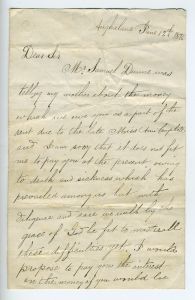 June 12th
Dear Sir
Mr Samuel Dunne was
telling my mother about the money
which we owe you as a part of the
rent due to the late Miss
and I am sorry that it does not put
me to pay you at the present owing
to death and sickness which has
prevailed among us but with
diligence and care we will by the
grace of God yet to master all
these difficulties yet. I would
propose to pay you the interest
on the money if you would be